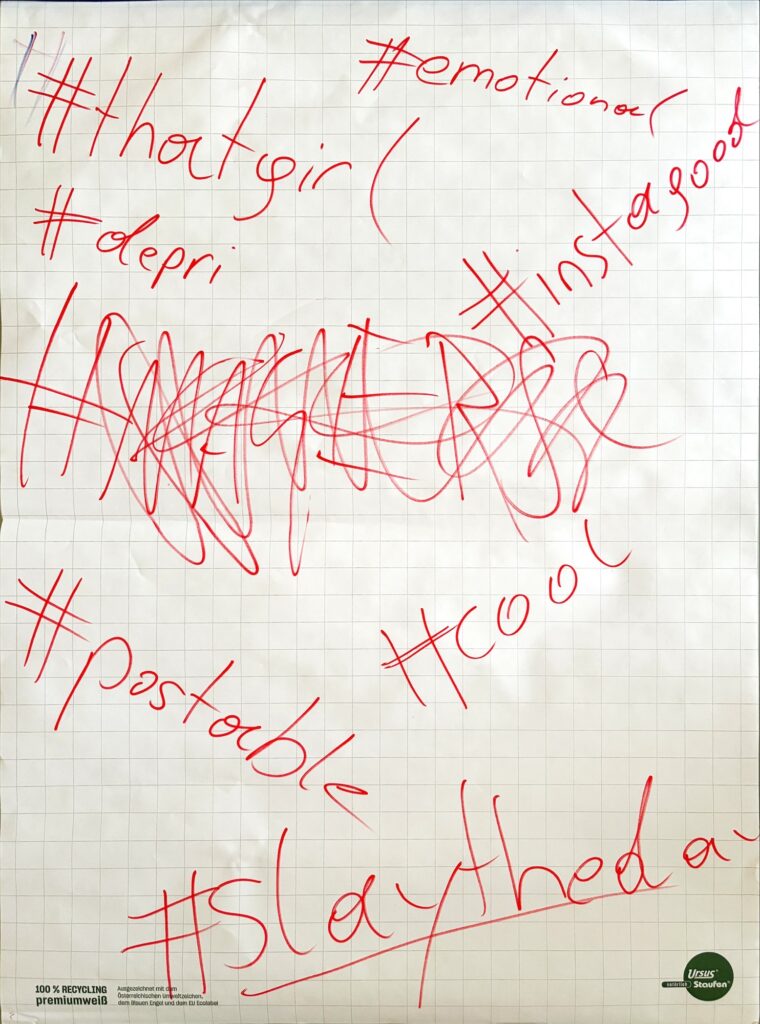 #emotional
#thatgirl
#instagood
#depri
#cool
#postable
#slaytheday
100 % RECYCLING
premiumweiß
Ausgezeichnet mit dem
Österreichischen Umweltzeichen,
dem Blauen Engel und dem EU Ecolabel
Ursus®
natürlich
Staufen®